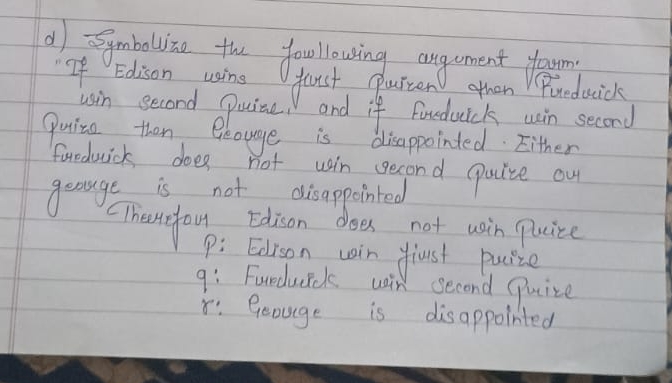 d) Symbolize the fowllowing argument form.
"If Edison wins first Prize then Fredrick
win second Prize, and if Fredrick win second
Prize then George is disappointed. Either
fredrick does not win second prize or
george is not disappointed
Therefor Edison does not win Prize
p: Edison win first prize
q: Fredrick win second Prize
r: George is disappointed